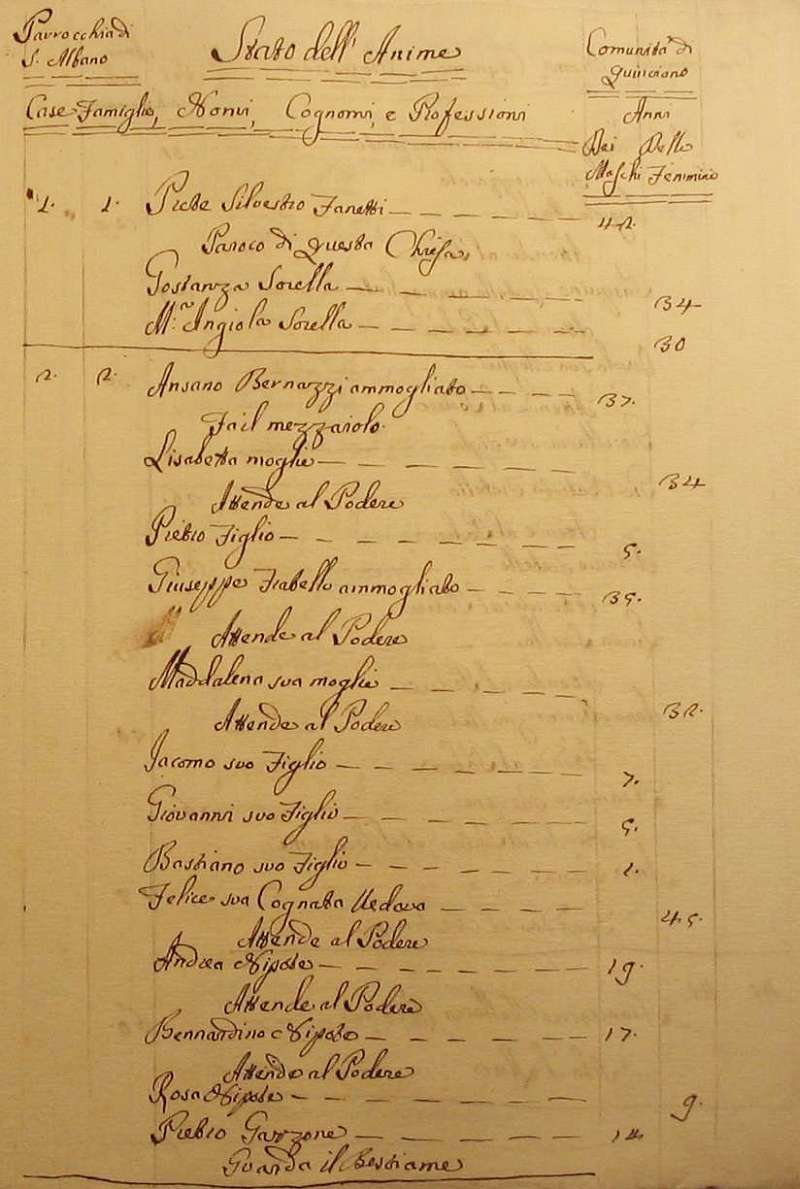 Parrocchia di
S. Albano
Stato dell' Anime
Comunità di
Quinciano
Case Famiglie, Nomi, Cognomi, e Professioni
Anni
Dei Delle
Maschi Femmine
1. 1. Prete Silvestro Fanetti 42.
Paroco di questa Chiesa,
Gostanza Sorella 34
M.a Angiola Sorella 30
2. 2. Ansano Bernazzi ammogliato 37.
Fa il mezzaiolo.
Lisabetta moglie 34
Attende al Podere
Pietro Figlio 5.
Giuseppe Fratello ammogliato 35.
Attende al Podere
Maddalena sua moglie 32.
Attende al Podere
Jacomo suo Figlio 7.
Giovanni suo Figlio 5.
Bastiano suo Figlio 1.
Felice sua Cognata Vedova 45.
Attende al Podere
Andrea Nipote 19.
Attende al Podere
Bernardino Nipote 17.
Attende al Podere
Rosa Nipote 9.
Pietro Garzone 14.
Guarda il Bestiame